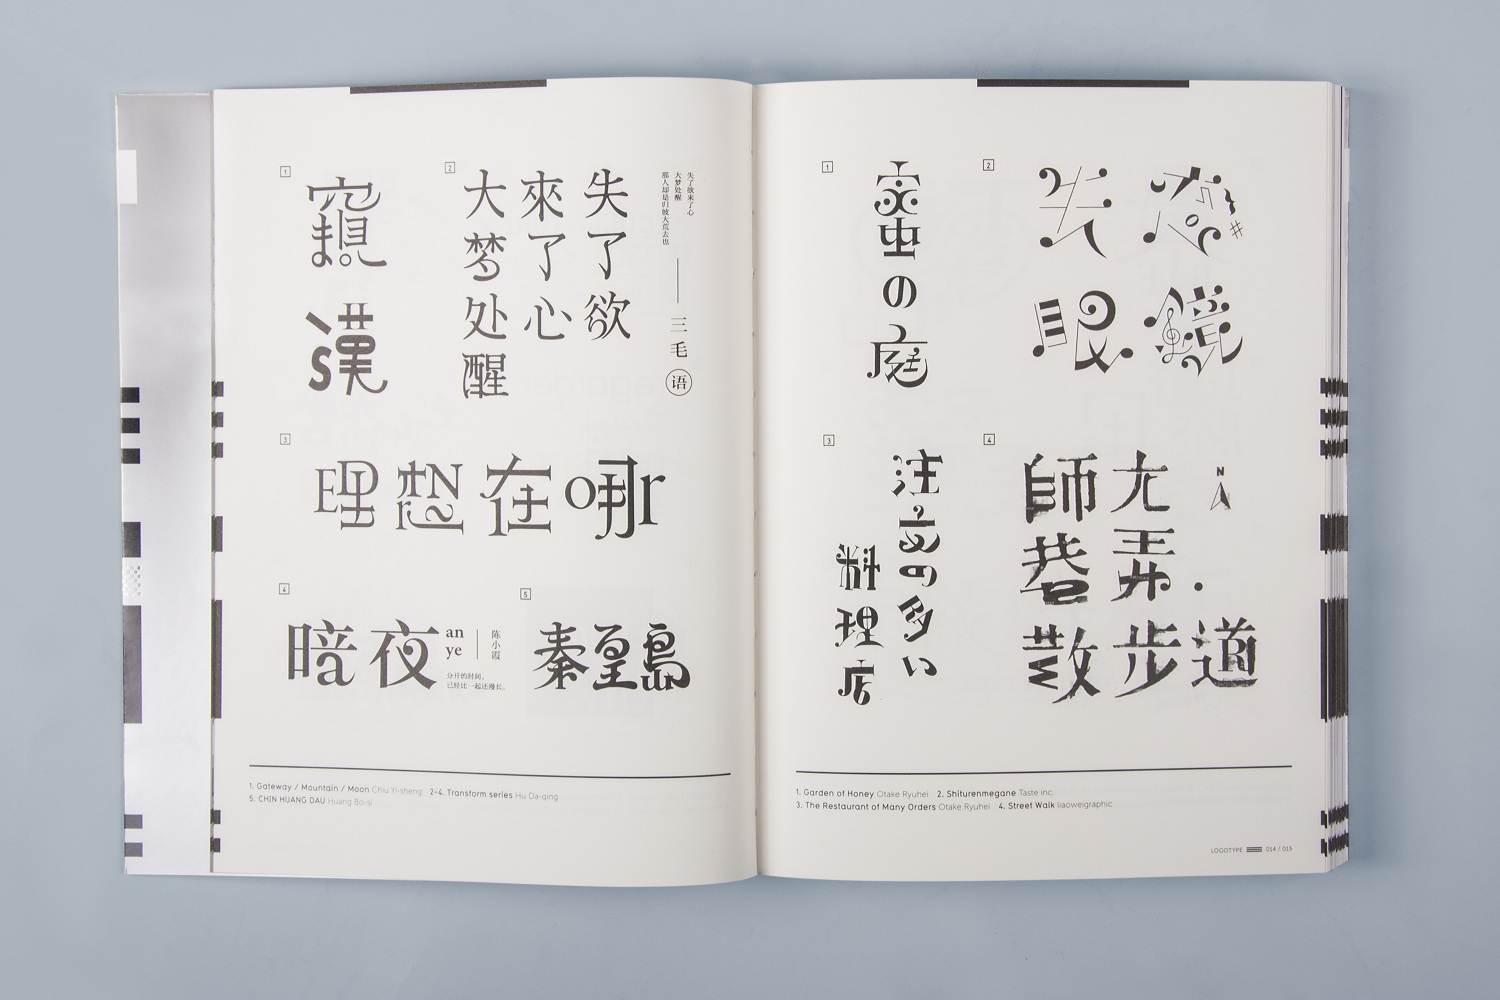 1
窺
漢
2
失了欲
來了心
大梦处醒
失了欲来了心
大梦处醒
那人却是归彼大荒去也
三毛
语
3
理想在哪
4
暗夜
an
ye
陈小霞
分开的时间，
已经比一起还漫长。
5
秦皇島
1. Gateway / Mountain / Moon Chiu Yi-sheng 2-4. Transform series Hu Da-qing
5. CHIN HUANG DAU Huang Bo-si
1
蜜の庭
2
失恋
眼鏡
3
注文の多い
料理店
4
N
師大
巷弄
散步道
1. Garden of Honey Otake Ryuhei 2. Shiturenmegane Taste inc.
3. The Restaurant of Many Orders Otake Ryuhei 4. Street Walk liaoweigraphic
LOGOTYPE 014 / 015